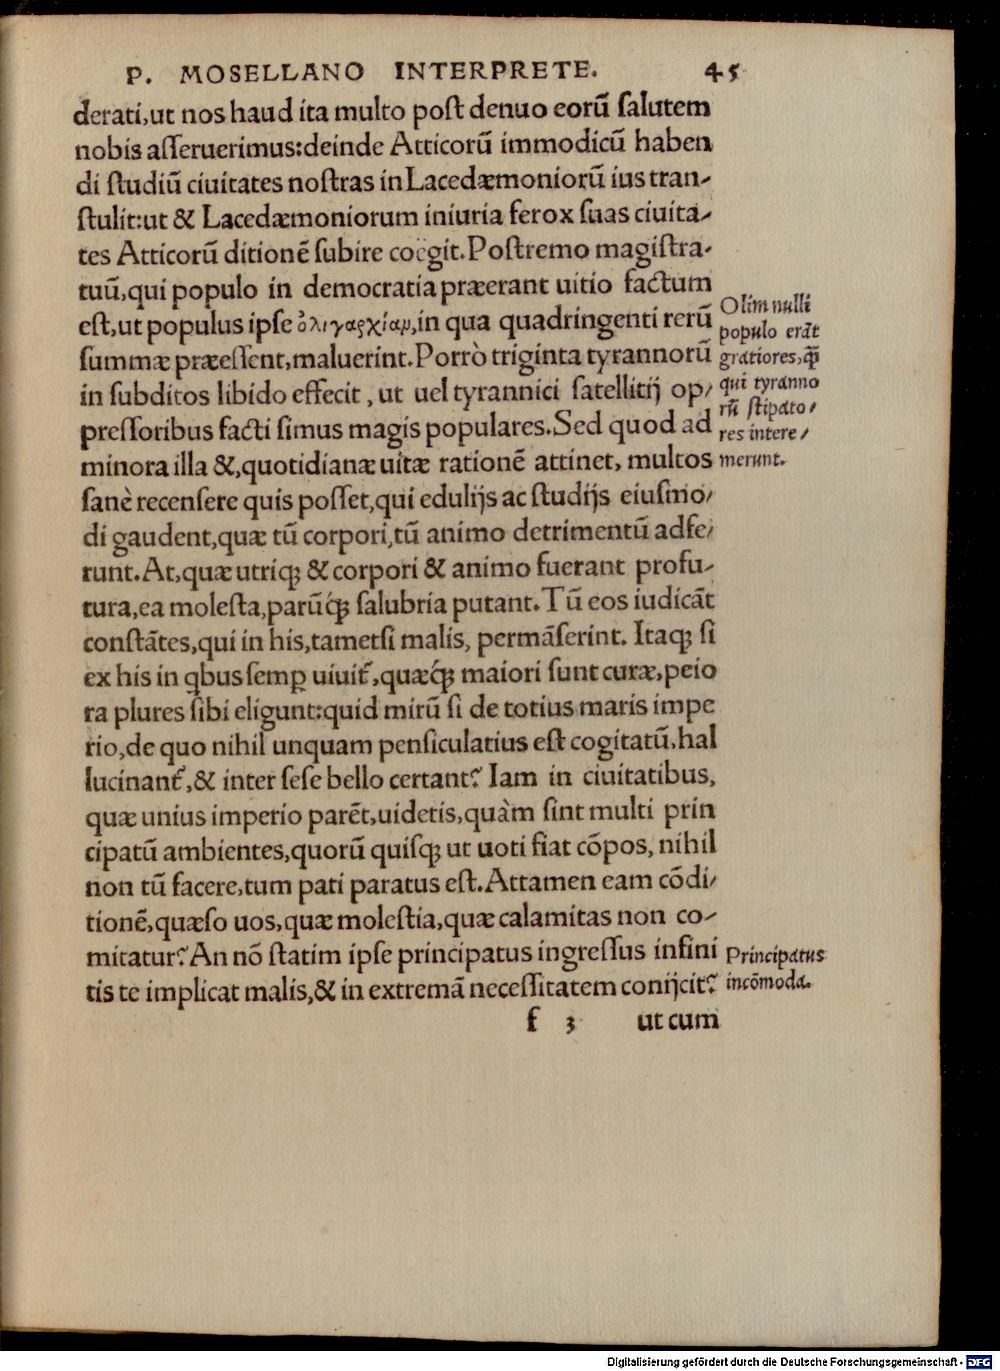 P. MOSELLANO INTERPRETE. 45
derati,ut nos haud ita multo poſt denuo eorũ ſalutem
nobis aſſeruerimus:deinde Atticorũ immodicũ haben
di ſtudiũ ciuitates noſtras in Lacedæmoniorũ ius tran-
ſtulit:ut & Lacedæmoniorum iniuria ferox ſuas ciuita-
tes Atticorũ ditionẽ ſubire coegit.Poſtremo magiſtra-
tuũ,qui populo in democratia præerant uitio factum
eſt,ut populus ipſe ὀλιγαρχίαν,in qua quadringenti rerũ
ſummæ præeſſent,maluerint.Porrò triginta tyrannorũ
in ſubditos libido effecit, ut uel tyrannici ſatellitij op/
preſſoribus facti ſimus magis populares.Sed quod ad
minora illa &,quotidianæ uitæ rationẽ attinet, multos
ſanè recenſere quis poſſet,qui edulijs ac ſtudijs eiuſmo/
di gaudent,quæ tũ corpori,tũ animo detrimentũ adfe/
runt.At,quæ utriqꝫ & corpori & animo fuerant profu-
tura,ea moleſta,parũqꝫ́ ſalubria putant.Tũ eos iudicãt
conſtãtes,qui in his,tametſi malis, permãſerint. Itaqꝫ ſi
ex his in qbus ſemꝑ uiuit᷑,quæqꝫ́ maiori ſunt curæ,peio
ra plures ſibi eligunt:quid mirũ ſi de totius maris impe
rio,de quo nihil unquam penſiculatius eſt cogitatũ,hal
lucinant᷑,& inter ſeſe bello certant? Iam in ciuitatibus,
quæ unius imperio parẽt,uidetis,quàm ſint multi prin
cipatũ ambientes,quorũ quiſqꝫ ut uoti fiat cõpos, nihil
non tũ facere,tum pati paratus eſt.Attamen eam cõdi/
tionẽ,quæſo uos,quæ moleſtia,quæ calamitas non co-
mitatur?An nõ ſtatim ipſe principatus ingreſſus infini
tis te implicat malis,& in extremã neceſſitatem conijcit?
f 3 ut cum
Olim nulli
populo erãt
gratiores,q̃
qui tyranno
rũ ſtipato/
res intere/
merunt.
Principatus
incõmoda.
Digitalisierung gefördert durch die Deutsche Forschungsgemeinschaft - DFG